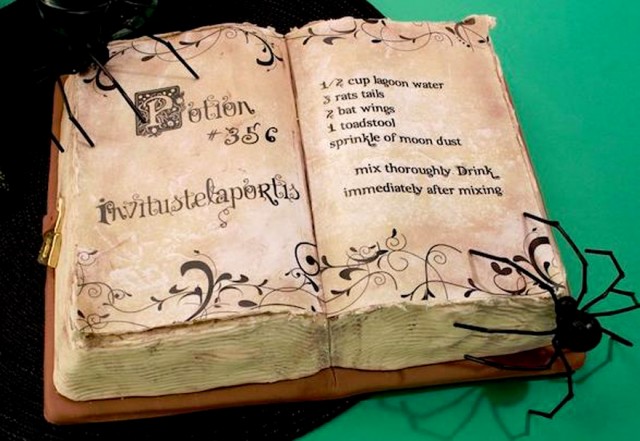 Potion
#356
invitustelaportis
1/2 cup lagoon water
3 rats tails
2 bat wings
1 toadstool
sprinkle of moon dust
mix thoroughly Drink
immediately after mixing